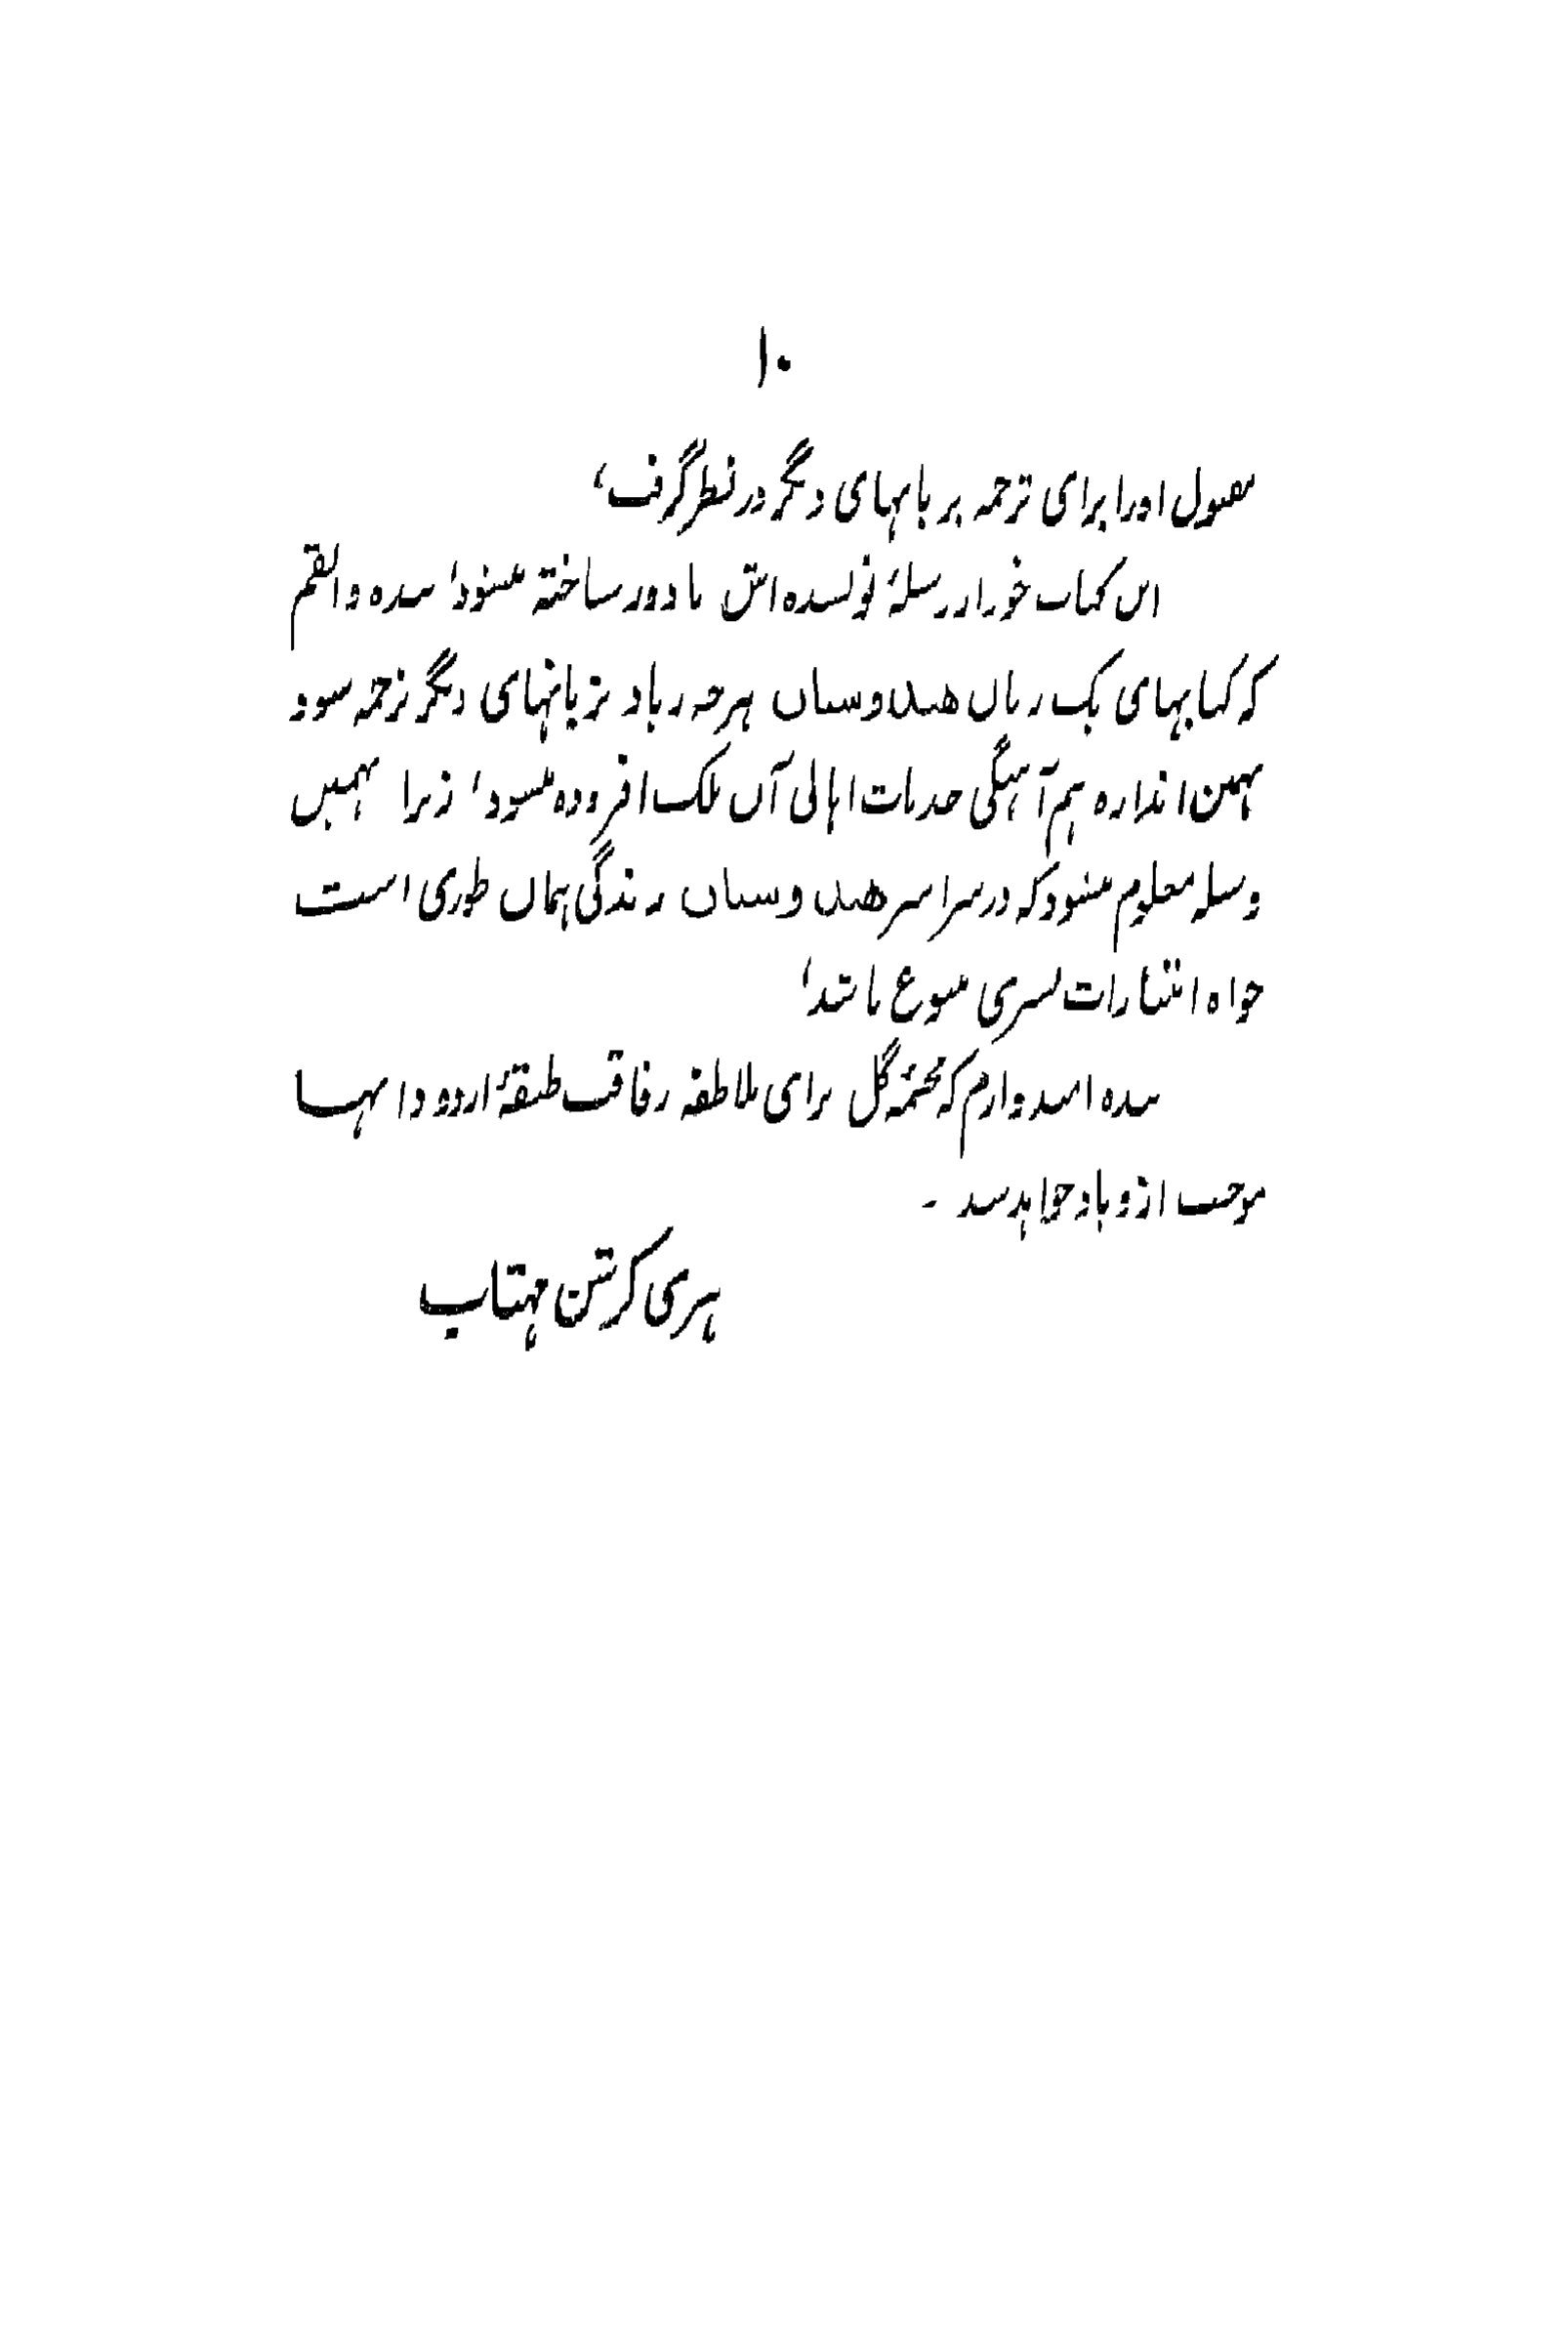 ۱۰
معمول اورا برای ترجمه بزبانهای دیگر در نظر گرفت،
این کتاب خود را در سلهٔ نویسنده‌اش ما دور ساخته میشود، بنده واقفم
که کتابهای یک زبان هندوستان هر چه زیاد بزبانهای دیگر ترجمه شود
بهمین اندازه هم آهنگی جذبات اهالی آن ملک افزوده میشود، زیرا بهمین
وسیله معلوم میشود که در سراسر هندوستان زندگی همان طوری است
خواه انتشارات بشری متنوع باشد،
بنده امیدوارم که مجسمهٔ گل برای ملاطفه رفاقت طبقهٔ اردو دانها
موجب ازدیاد خواهد شد ۔
ہری کرشن مہتاب